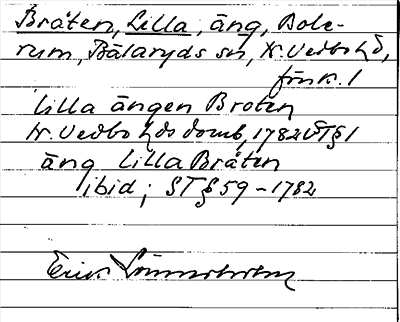 Bråten, Lilla, äng, Bole-
rum, Bälaryds sn, N. Vedbo hd,
Jönk. l
Lilla ängen Broten
N. Vedbo hds domb, 1782 VT § 1
äng Lilla Bråten
ibid; ST § 59 - 1782
Erik